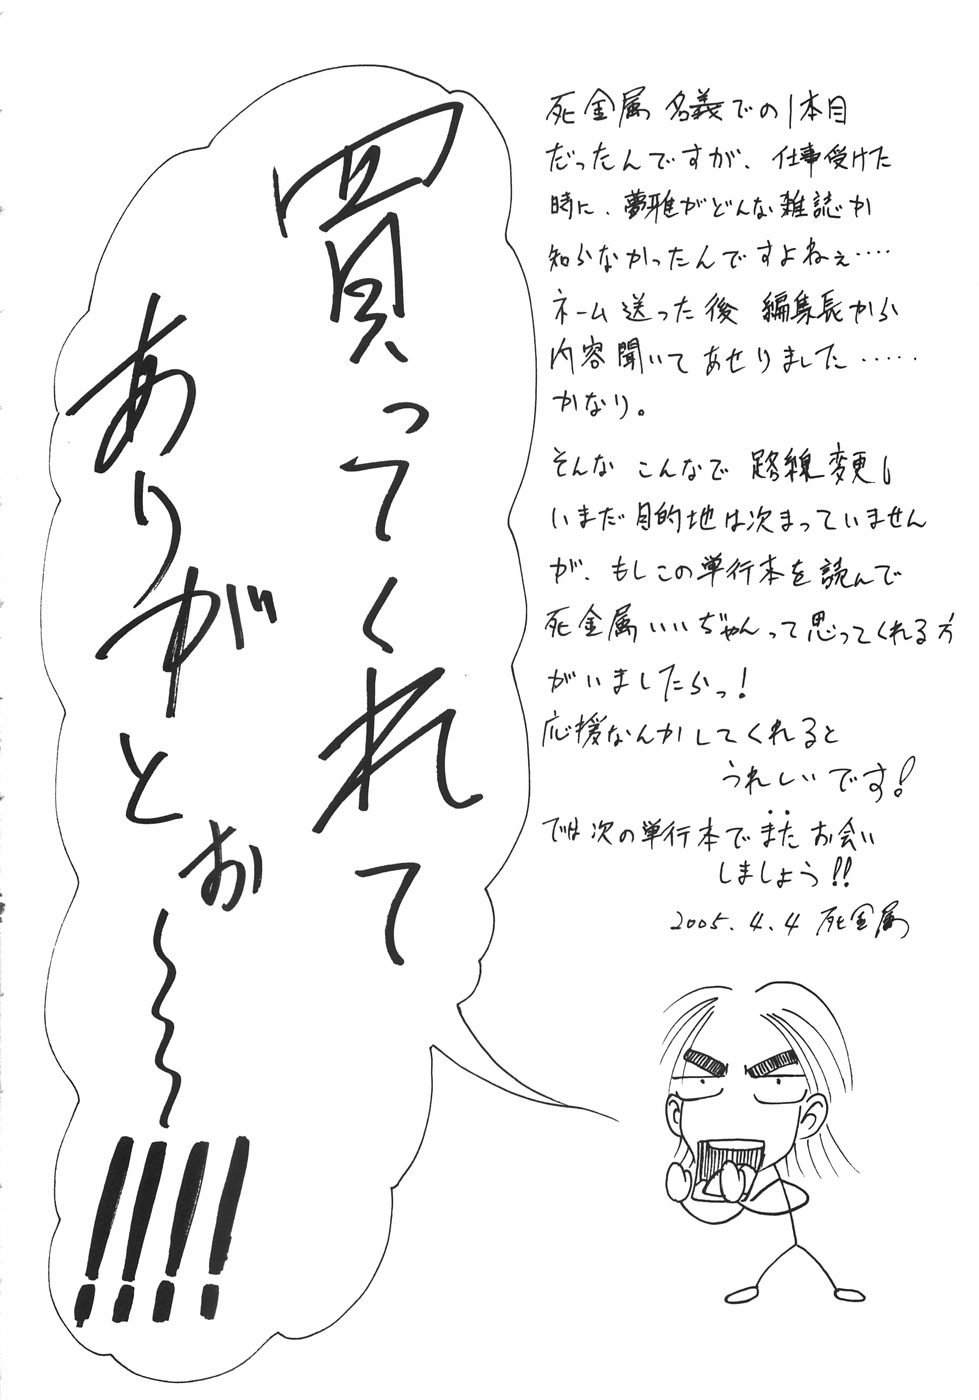 死金属 名義での1本目
だったんですが、仕事受けた
時に、夢雅がどんな雑誌か
知らなかったんですよねぇ‥‥
ネーム送った後 編集長から
内容聞いてあせりました‥‥‥
かなり。
そんな こんなで 路線変更し
いまだ目的地は決まっていません
が、もしこの単行本を読んで
死金属いいぢゃんって思ってくれる方
がいましたらっ!
応援なんかしてくれると
うれしいです!
では次の単行本でまたお会い
しましょう!!
2005.4.4 死金属
買ってくれて
ありがとぉ〜〜〜!!!!